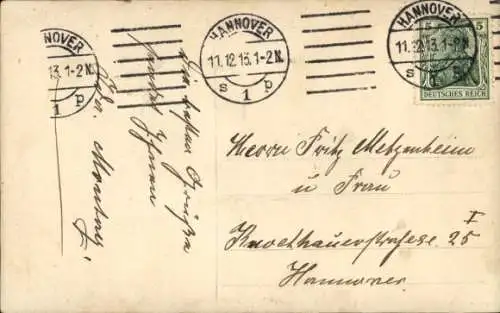 HANNOVER
13.1-2N.
1 b
HANNOVER
11.12.13.1-2N.
s 1 b
HANNOVER
11.12.13.1-2N.
s 1 b
5 5
DEUTSCHES REICH
Die besten Grüße
sendet Ihnen
Herrn Fritz Metzenheim
u Frau
Knochenhauerstraße 25 I
Hannover